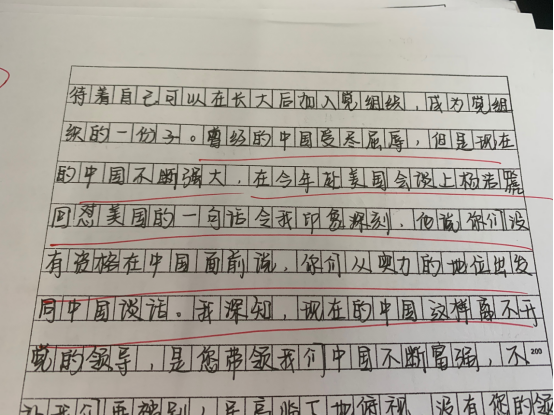 待着自己可以在长大后加入党组织，成为党组
织的一份子。曾经的中国受尽屈辱，但是现在
的中国不断强大，在今年赴美国会谈上杨洁篪
回怼美国的一句话令我印象深刻，他说你们没
有资格在中国面前说，你们从实力的地位出发
同中国谈话。我深知，现在的中国这样离不开
党的领导，是您带领我们中国不断富强，不
200
我们再被别，居高临下地俯视，没有您的领